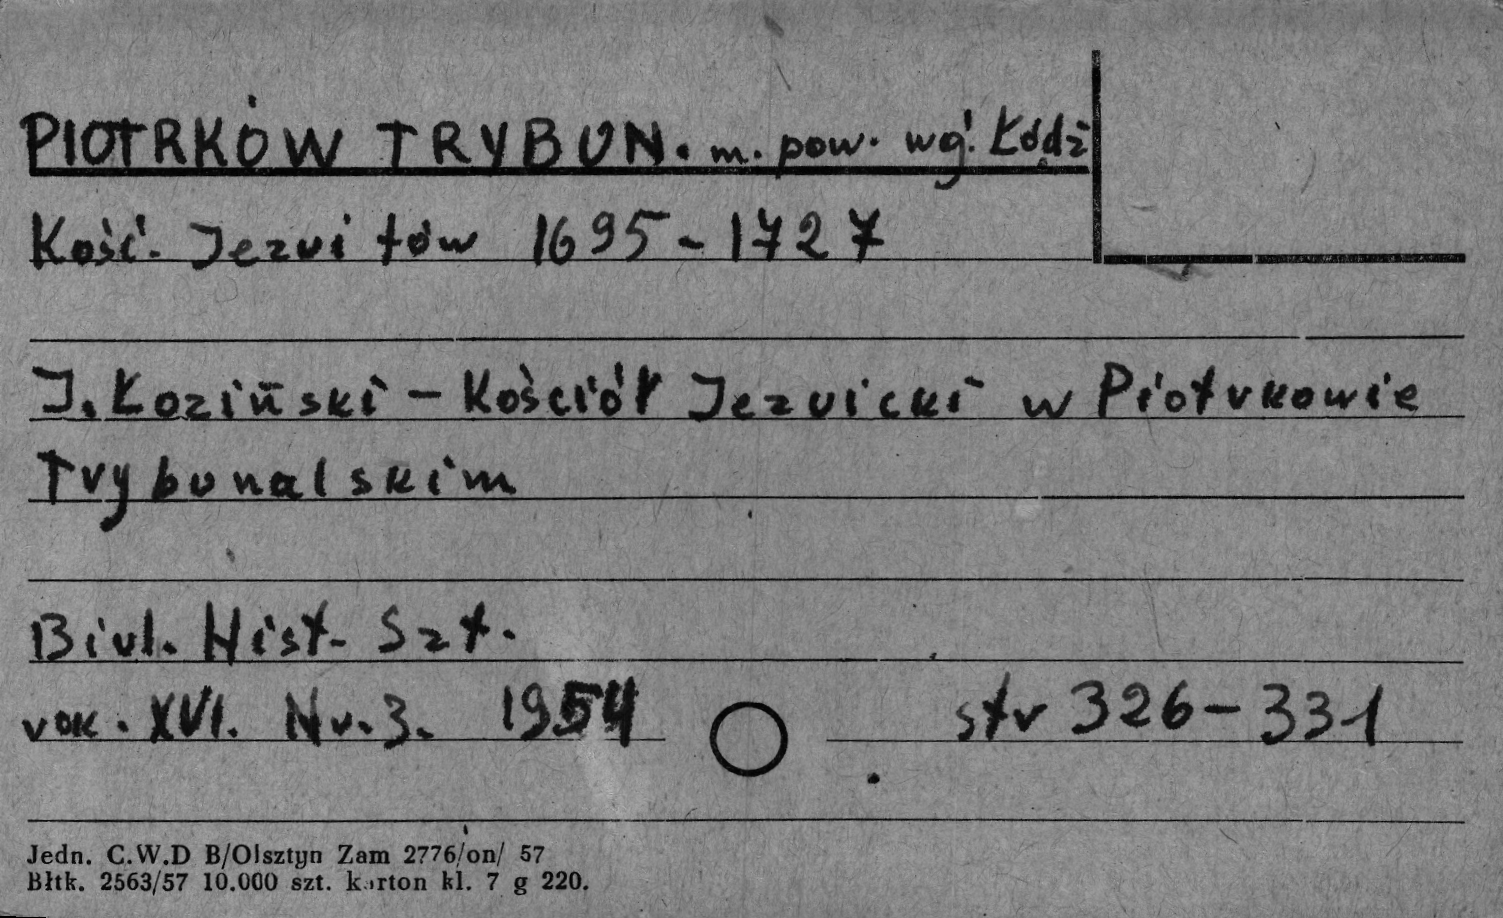 PIOTRKÓW TRYBUN. m. pow. wg. Łódź
Kość. Jezuitów 1695-1727
J. Łoziński - Kościół Jezuicki w Piotrkowie
Trybunalskim
Biul. Hist. Szt.
rok. XVI. Nr. 3. 1954 str 326-331
Jedn. C.W.D B/Olsztyn Zam 2776/on/ 57
Błtk. 2563/57 10.000 szt. karton kl. 7 g 220.